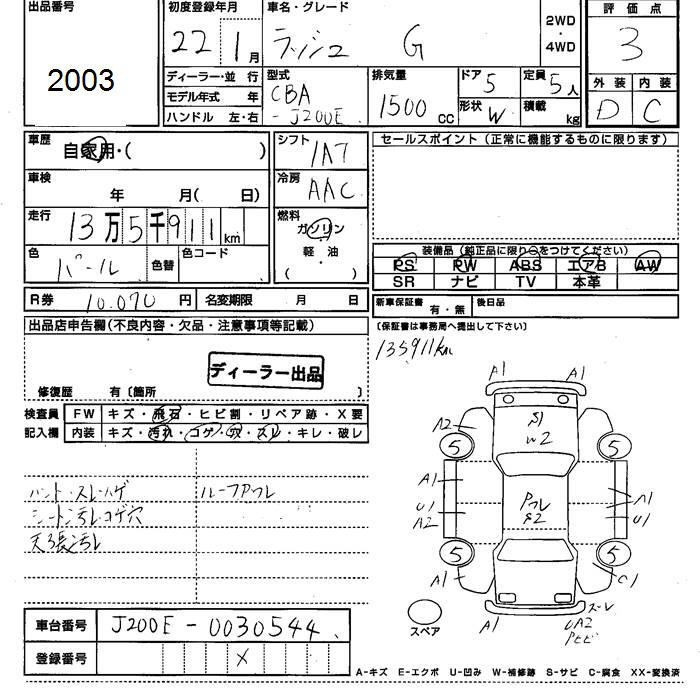 出品番号
2003
初度登録年月
22 1月
車名・グレード
ラッシュ G
2WD
・
4WD
評価点
3
外装 内装
D C
ディーラー・並 行
モデル年式 年
ハンドル 左・右
型式
CBA
-J200E
排気量
1500 CC
ドア 5
形状 W
定員 5人
積載 kg
車歴
自家用・( )
シフト
IAT
車検
年 月(日)
冷房
AAC
走行
13万5千911km
燃料
ガソリン
・
軽・油
( )
色
パール
色替
色コード
R券 10.070円
名変期限 月 日
セールスポイント(正常に機能するものに限ります)
装備品(純正品に限り○をつけてください)
PS PW ABS エアB AW
SR ナビ TV 本革
新車保証書 有・無
後日品
〔保証書は事務局へ提出して下さい〕
出品店申告欄(不良内容・欠品・注意事項等記載)
ディーラー出品
修復歴 有〔箇所 〕
検査員
記入欄
FW キズ・飛石・ヒビ割・リペア跡・X要
内装 キズ・汚れ・コゲ・穴・スレ・キレ・破レ
135911km
ハンドル・スレ・ハゲ
ルーフアフレ
シート汚レ・コゲ穴
天張汚レ
A1 A1
A2
S1
W2
5 5
A1
U1
A2
Pフレ
S2
A1
U1
5 5
A1
A1
スレ
UA2
Pヒビ
スペア
車台番号 J200E-0030544
登録番号 X
A-キズ E-エクボ U-凹み W-補修跡 S-サビ C-腐食 XX-変換済